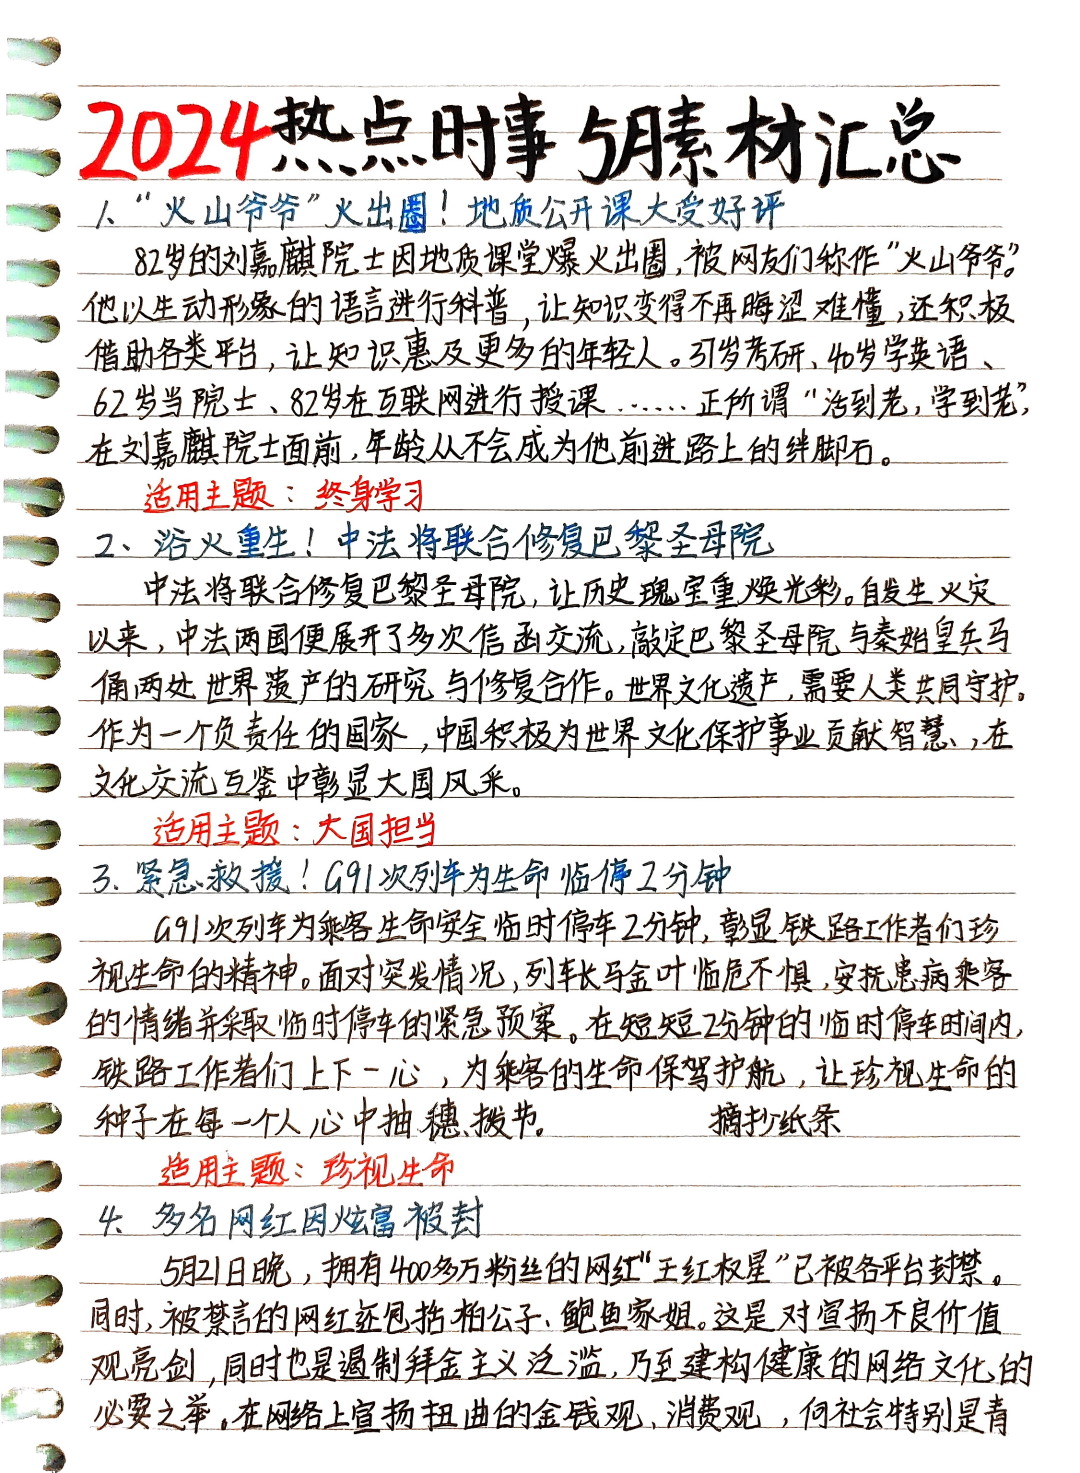 2024热点时事 5月素材汇总
1、“火山爷爷”火出圈！地质公开课大受好评
82岁的刘嘉麒院士因地质课堂爆火出圈，被网友们称作“火山爷爷”。
他以生动形象的语言进行科普，让知识变得不再晦涩难懂，还积极
借助各类平台，让知识惠及更多的年轻人。31岁考研、40岁学英语、
62岁当院士、82岁在互联网进行授课……正所谓“活到老，学到老”，
在刘嘉麒院士面前，年龄从不会成为他前进路上的绊脚石。
适用主题：终身学习
2、浴火重生！中法将联合修复巴黎圣母院
中法将联合修复巴黎圣母院，让历史瑰宝重焕光彩。自发生火灾
以来，中法两国便展开了多次信函交流，敲定巴黎圣母院与秦始皇兵马
俑两处世界遗产的研究与修复合作。世界文化遗产，需要人类共同守护。
作为一个负责任的国家，中国积极为世界文化保护事业贡献智慧、，在
文化交流互鉴中彰显大国风采。
适用主题：大国担当
3、紧急救援！G91次列车为生命临停2分钟
G91次列车为乘客生命安全临时停车2分钟，彰显铁路工作者们珍
视生命的精神。面对突发情况，列车长马金叶临危不惧，安抚患病乘客
的情绪并采取临时停车的紧急预案。在短短2分钟的临时停车时间内，
铁路工作者们上下一心，为乘客的生命保驾护航，让珍视生命的
种子在每一个人心中抽穗、拨节。 摘抄纸条
适用主题：珍视生命
4、多名网红因炫富被封
5月21日晚，拥有400多万粉丝的网红“王红权星”已被各平台封禁。
同时，被禁言的网红还包括柏公子、鲍鱼家姐。这是对宣扬不良价值
观亮剑，同时也是遏制拜金主义泛滥，乃至建构健康的网络文化的
必要之举。在网络上宣扬扭曲的金钱观、消费观，向社会特别是青